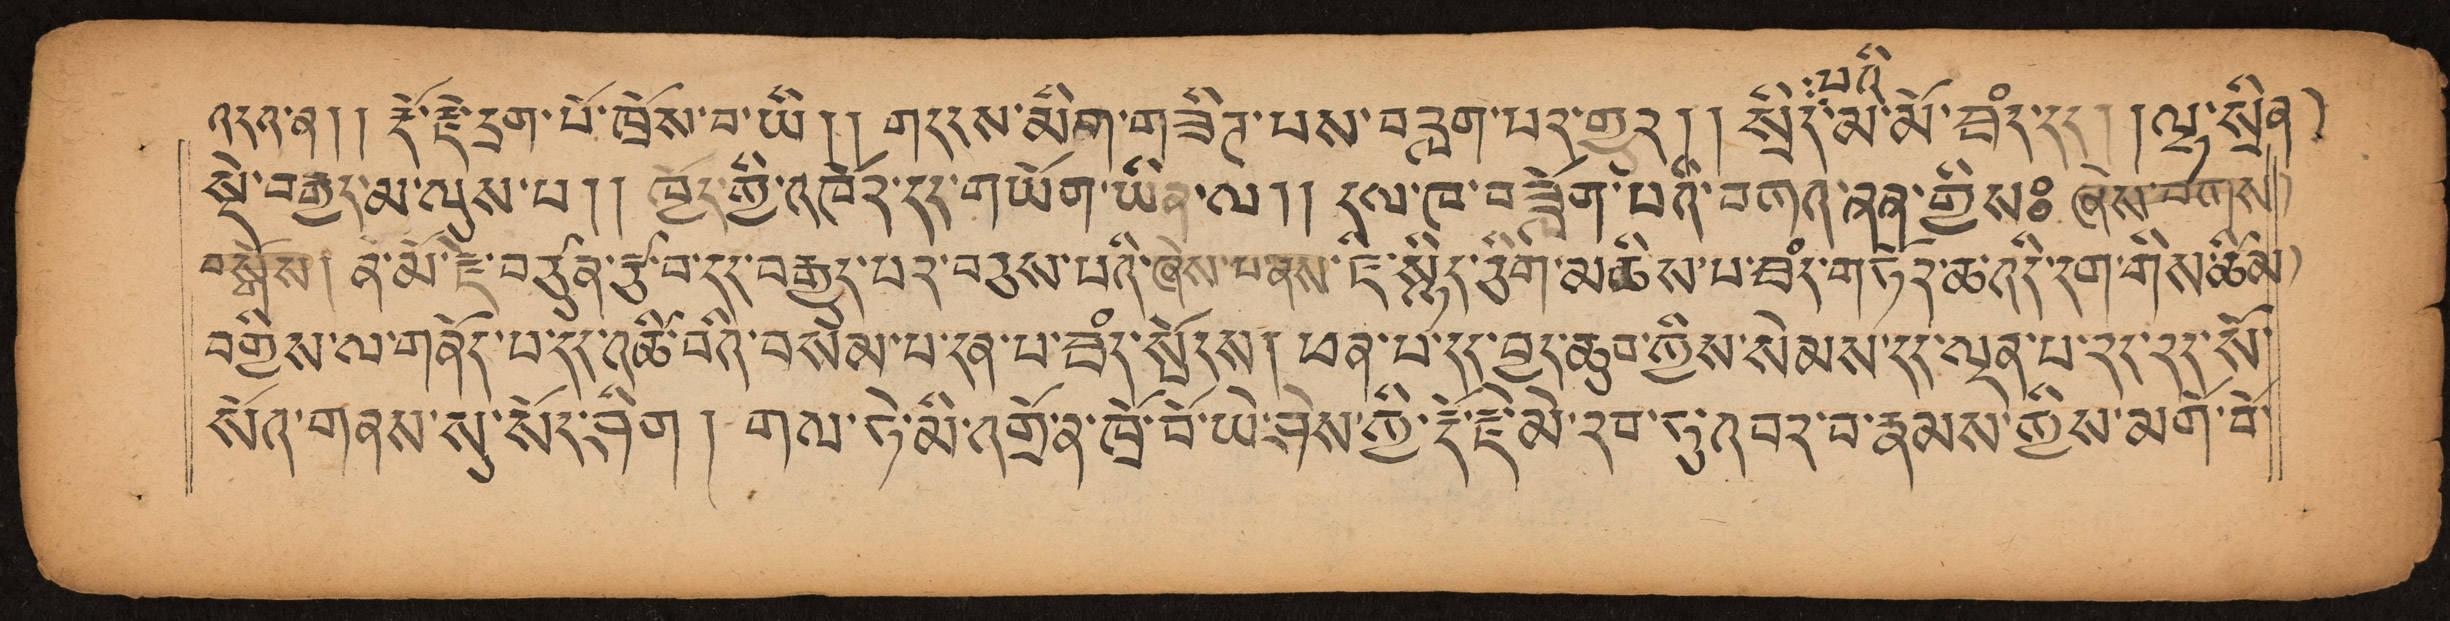 འདའ་ན།། རྡོ་རྗེ་དྲག་པོ་ཁྲོས་བ་ཡི།། གདངས་མིག་གཟིར་པས་བརླག་པར་གྱུར།། སྲིད་པའི་མ་མོ་ཁྲོད་དང་། །ལྷ་སྲིན
སྡེ་བརྒྱད་མ་ལུས་པ།། ཁྱེད་ཀྱི་འཁོར་དང་གཡོག་ཡིན་ལ།། དལ་ཁ་བཟློག་པའི་བཀའ་ཉན་གྱིས༔ ཞེས་བཀས
བསྒོས། ན་མོ་རྗེ་བཙུན་རྩ་བ་དང་བརྒྱུད་པར་བཅས་པའི་ཞེས་པནས་ཏི་སྙིང་ཅིག་མཆིས་པ་ཁྲོད་གཏོར་ཆ་འདི་དག་གིས་ཚིམ
བགྱིས་ལ་གནོད་པ་དང་འཚེ་བའི་བསེམ་པ་ངན་པ་ཁྲོད་སྤོངས། ཕན་པ་དང་བྱང་ཆུབ་ཀྱིས་སེམས་དང་ལྡན་པ་རང་རང་སོ་
སོའི་གནས་སུ་སོང་ཤིག །གལ་ཏེ་མི་འགྲོ་ན་ཁྲོ་བོ་ཡེ་ཤེས་ཀྱི་རྡོ་རྗེ་མེ་རབ་ཏུ་འབར་བ་རྣམས་ཀྱིས་མགོ་བོ་